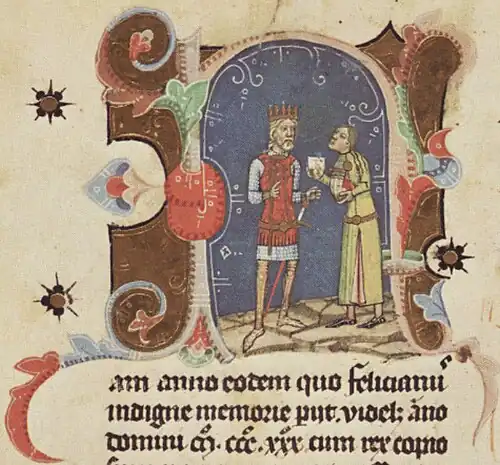 Nam anno eodem quo felicianu᷒
indigne memorie ꝑijt. videlꝫ ãno
domini m̊. ccc. xxx. cum rex copio